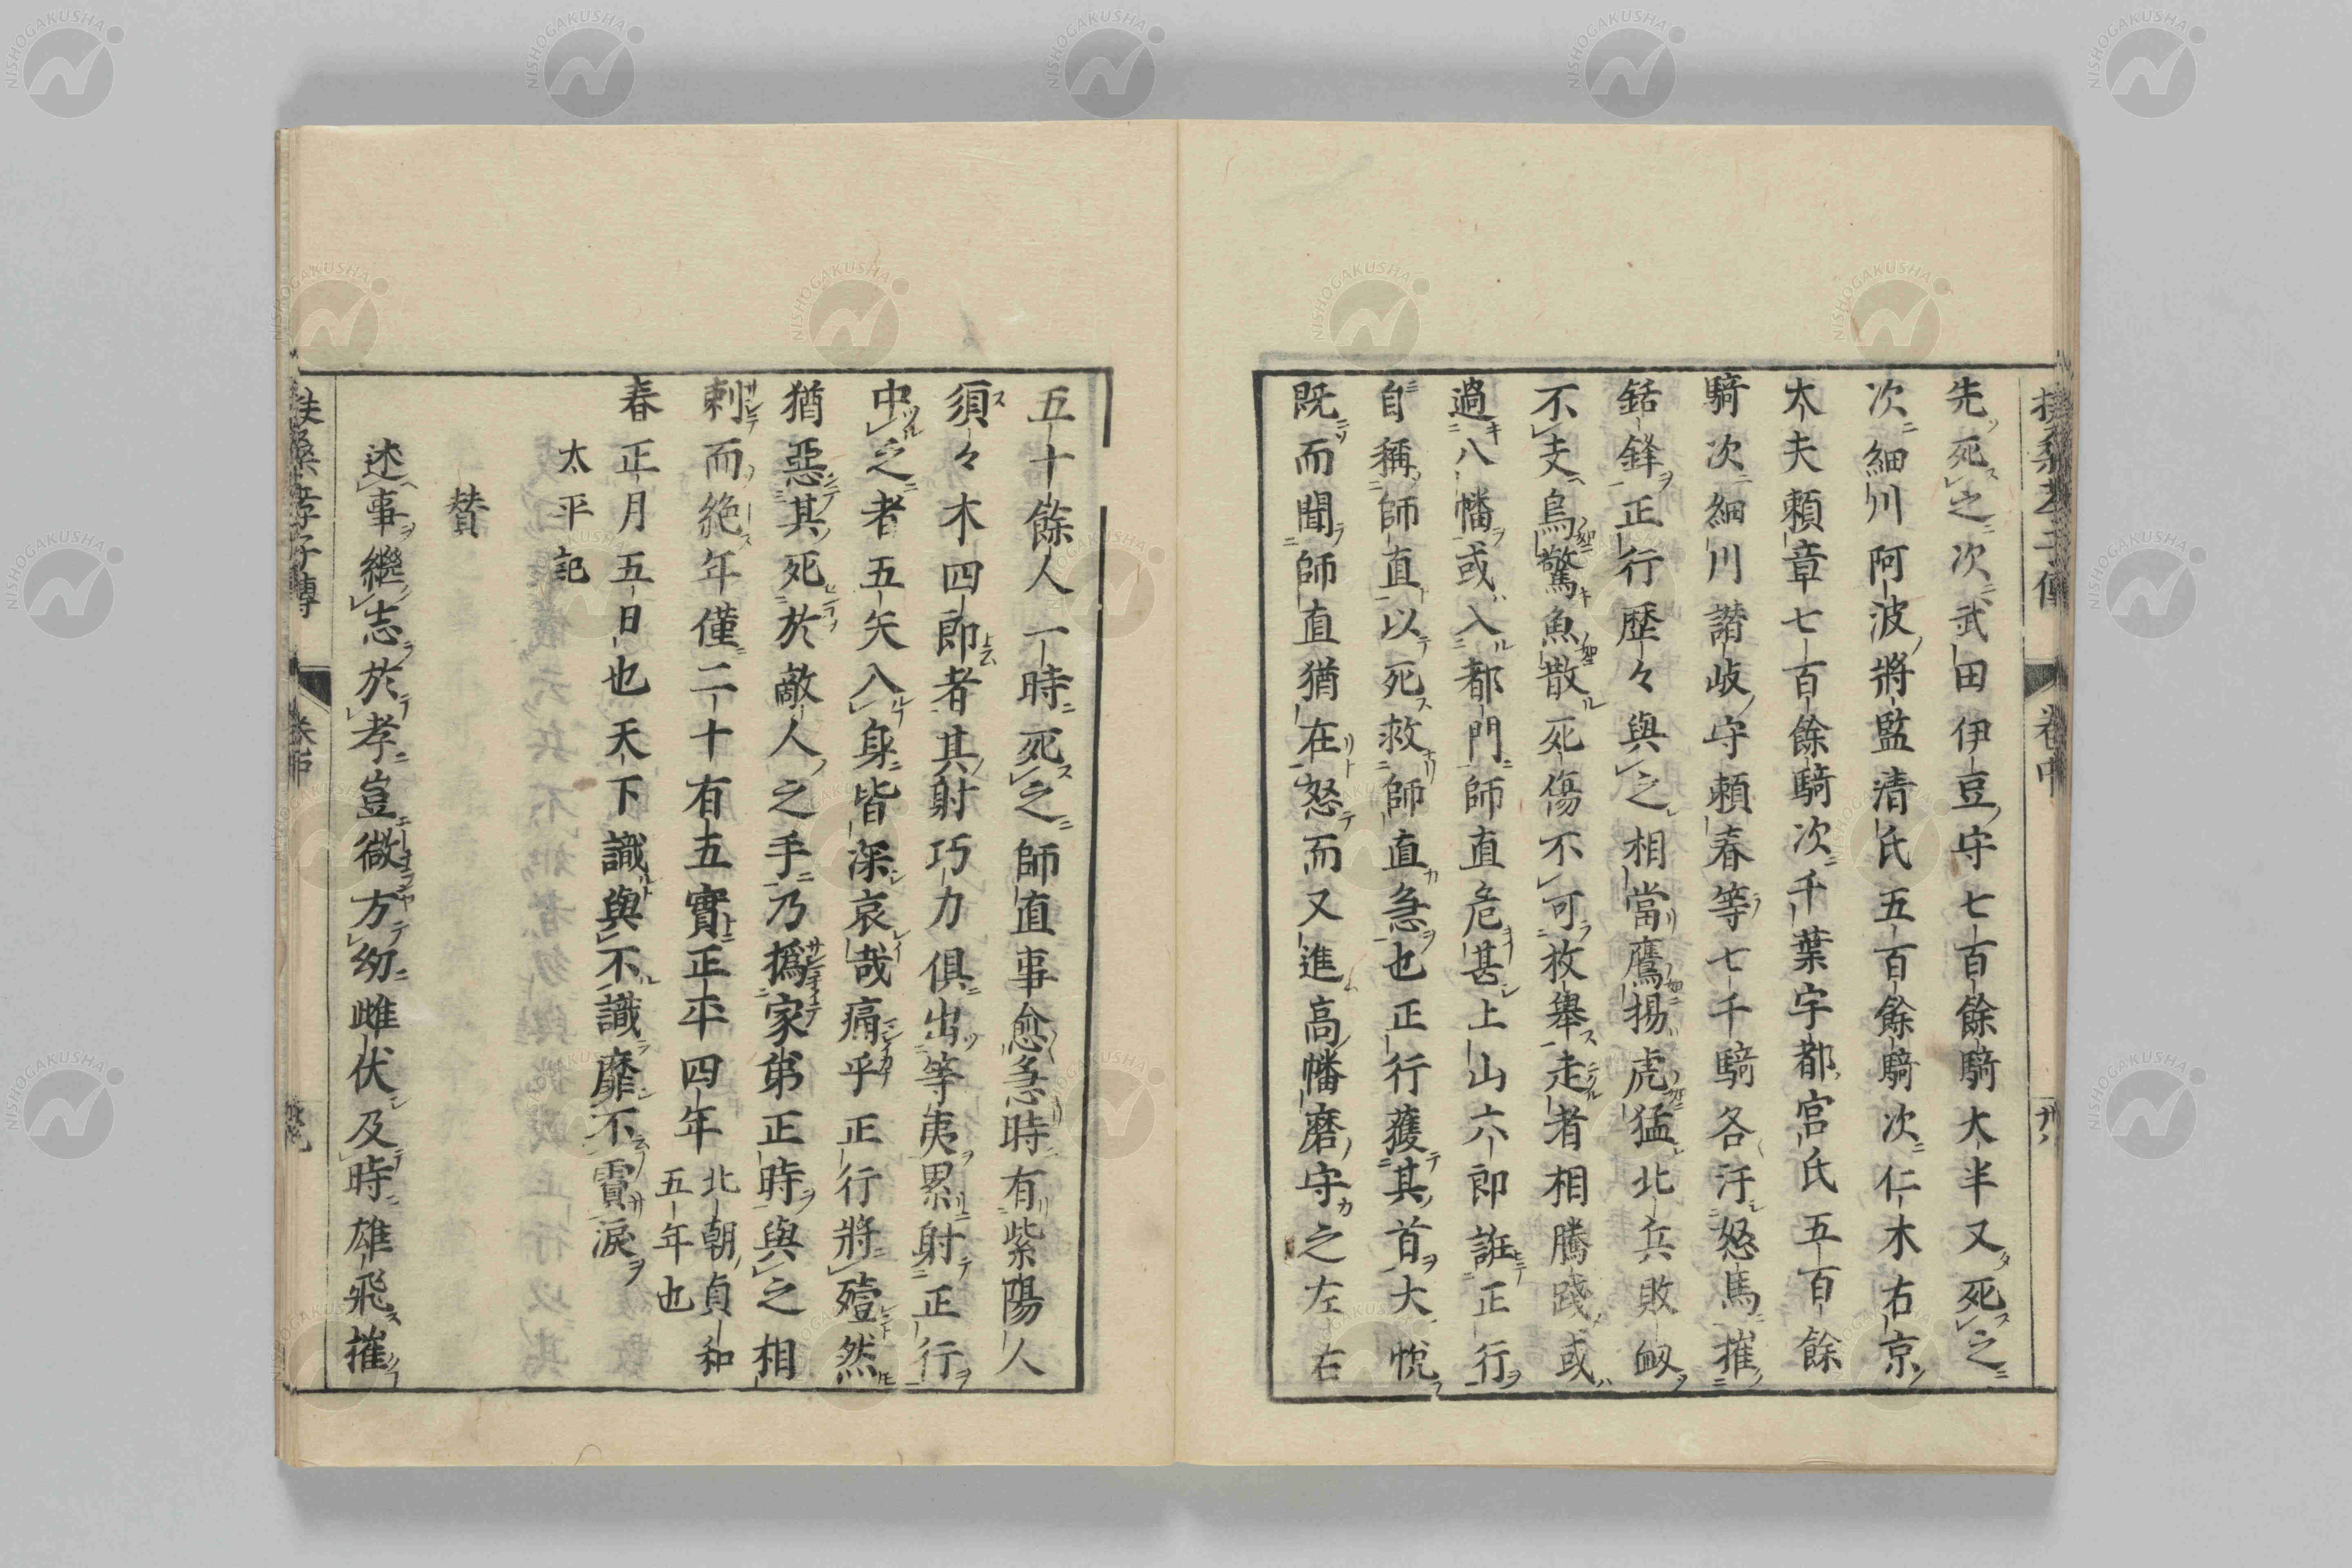 先死之次武田伊豆守七百餘騎大半又死之
次細川阿波將監清氏五百餘騎次仁木右京
太夫頼章七百餘騎次千葉宇都宮氏五百餘
騎次細川讃岐守頼春等七千騎各汗怒馬摧
銛鋒正行歷々與之相當鷹揚虎猛北兵敗衂
不支鳥驚魚散死傷不可救舉走者相騰踐或
過八幡或入都門師直危甚上山六郎誑正行
自稱師直以死救師直急也正行獲其首大悅
既而聞師直猶在怒而又進高幡磨守之左右
五十餘人一時死之師直事愈急時有紫陽人
須々木四郎者其射巧力俱出等夷累射正行
中之者五矢入身皆深哀哉痛乎正行將殪然
猶惡其死於敵人之手乃撝家弟正時與之相
刺而絶年僅二十有五實正平四年北朝貞和
五年也
春正月五日也天下識與不識靡不賈淚
太平記
賛
述事繼志於孝豈微方幼雌伏及時雄飛摧
扶桑孝子傳
卷中
NISHOGAKUSHA